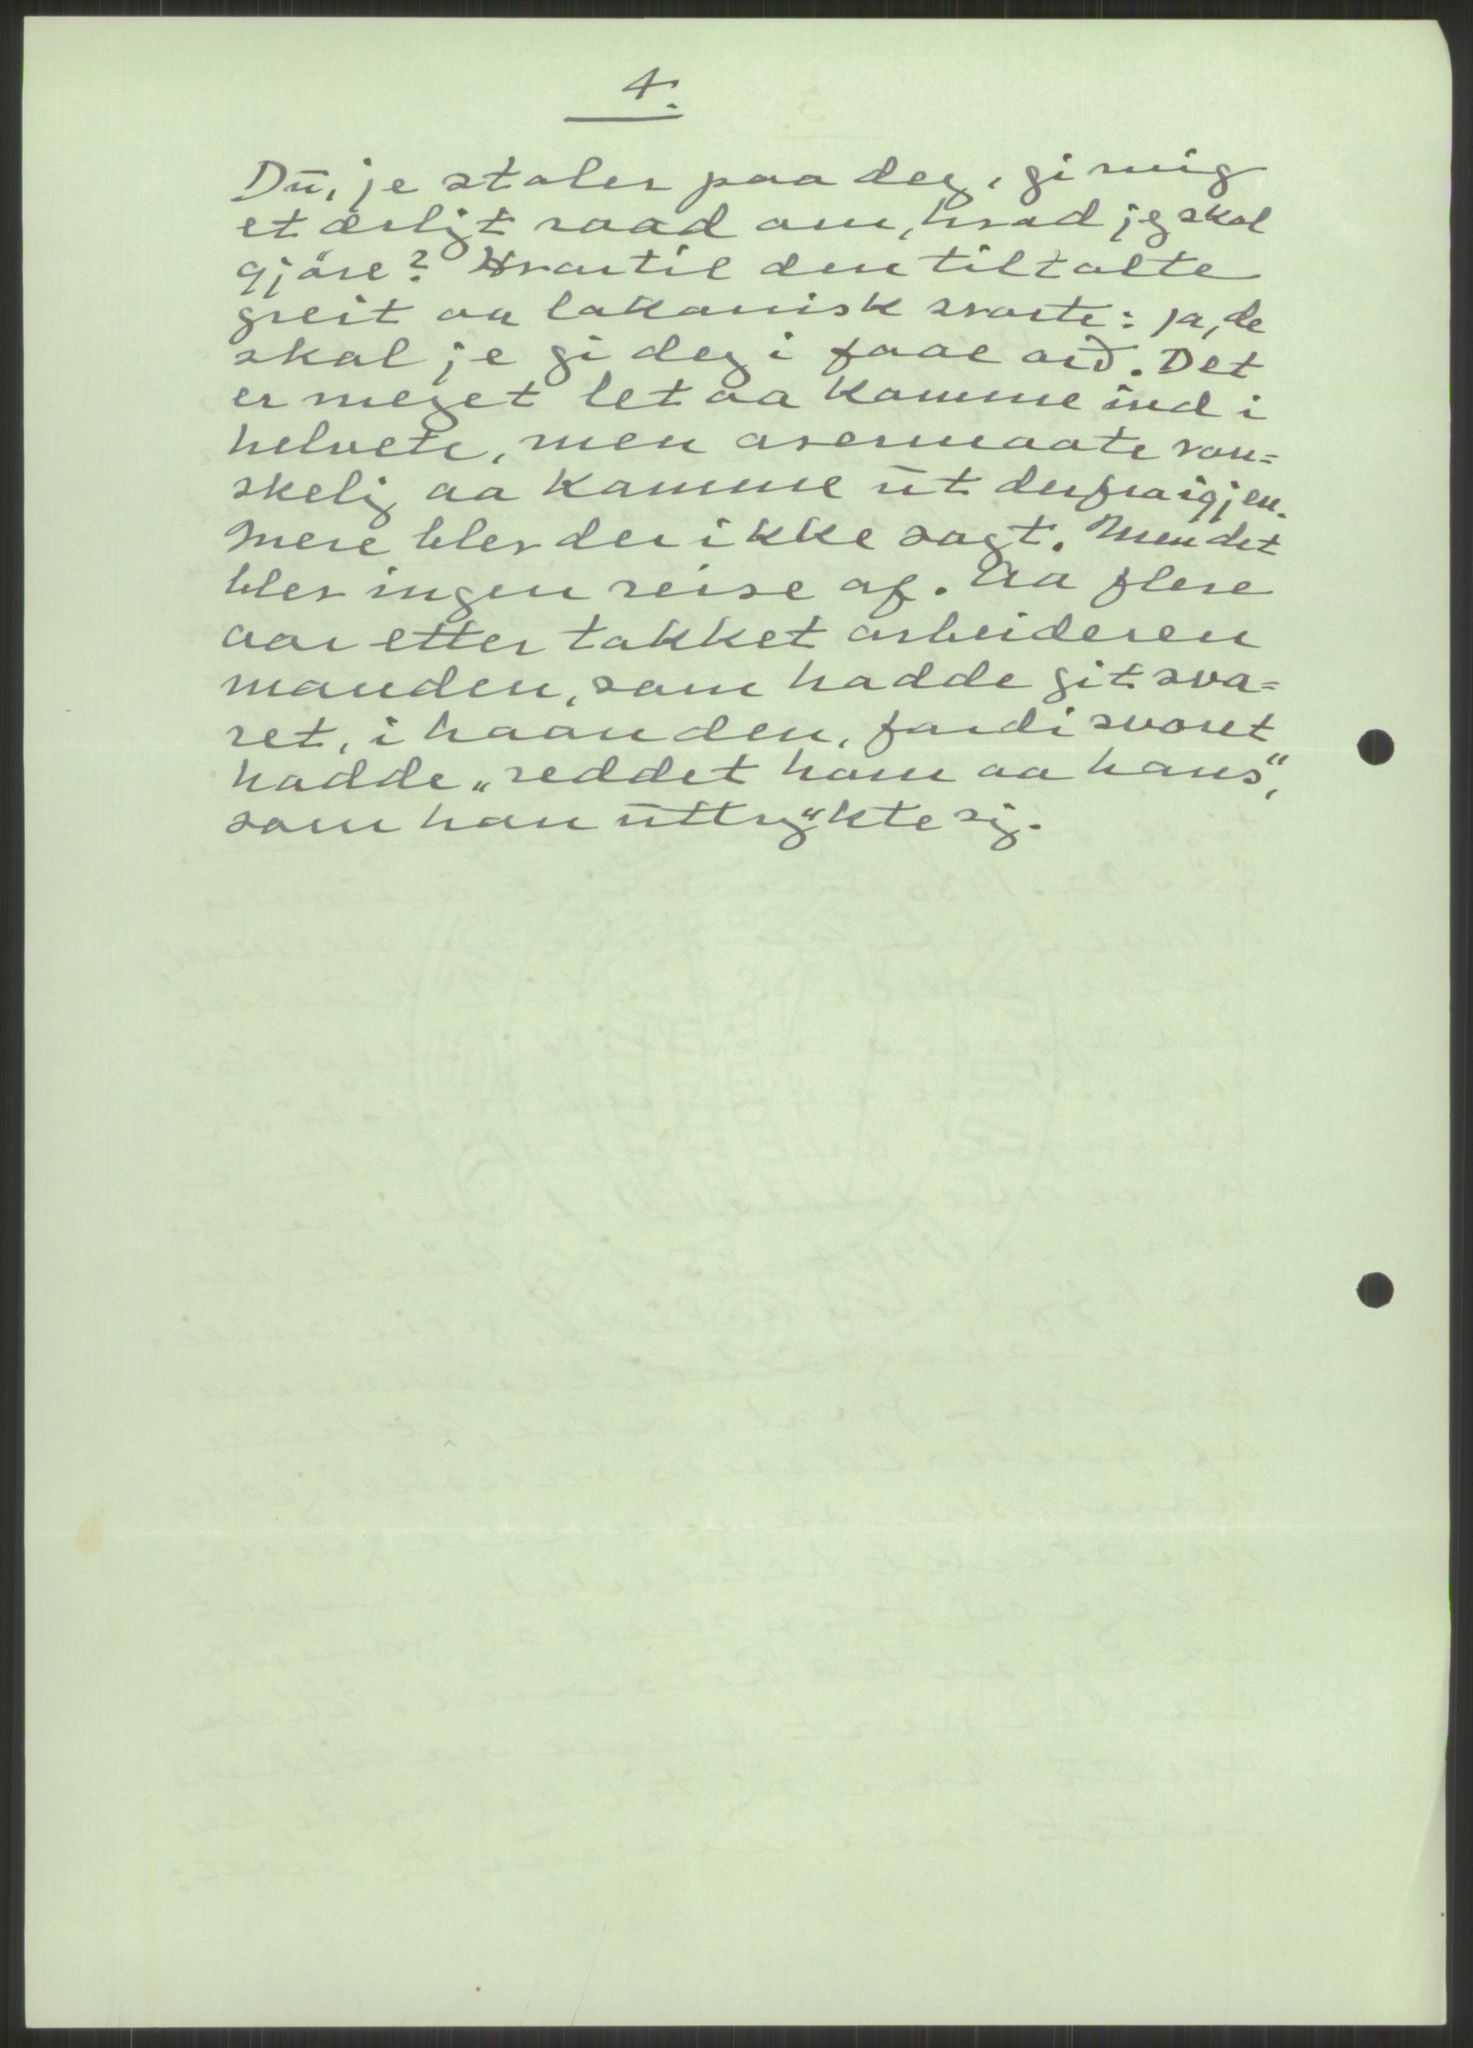 4.
Du, je stoler paa deg, gi mig
et ærligt raad om, hvad jeg skal
gjøre? Hvortil den tiltalte
greit aa lakonisk svarte: ja, de
skal je gi deg i faae ord. Det
er meget let aa komme ind i
helvete, men overmaate van=
skelig aa komme ut derfra igjen.
Mere blev der ikke sagt. Men det
blev ingen reise af. Aa flere
aar etter takket arbeideren
manden, som hadde git sva=
ret, i haanden, fordi svaret
hadde „reddet ham aa hans“,
som han uttrykte sig.